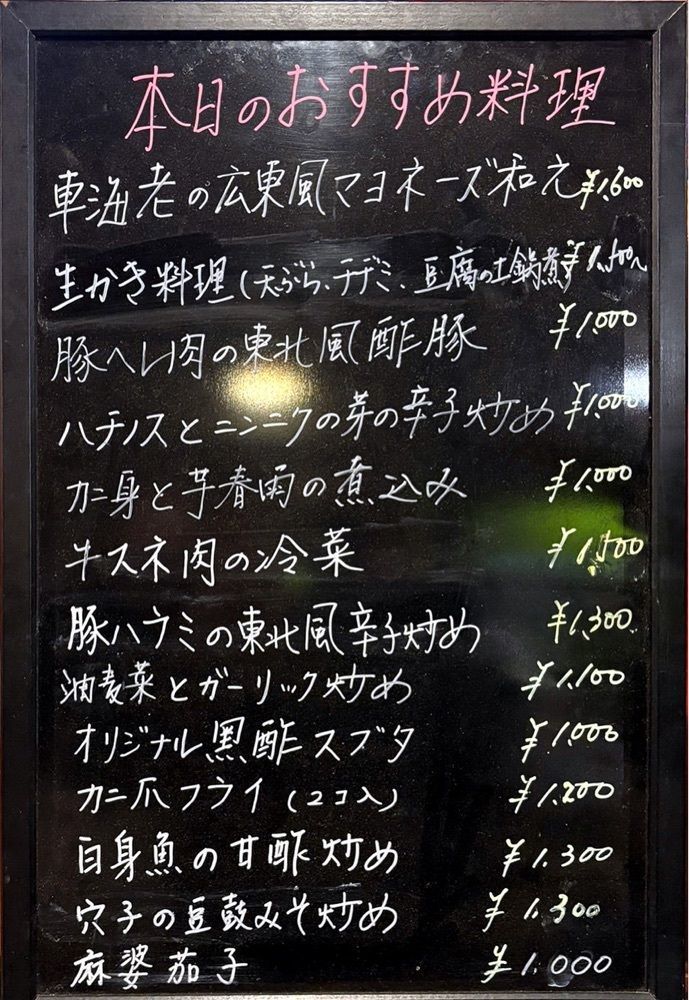 本日のおすすめ料理
車海老の広東風マヨネーズ和え ¥1,600
生かき料理(天ぷら、チヂミ、豆腐の土鍋煮) ¥1,500〜
豚ヘレ肉の東北風酢豚 ¥1,000
ハチノスとニンニクの芽の辛子炒め ¥1,000
カニ身と芋春雨の煮込み ¥1,000
牛スネ肉の冷菜 ¥1,500
豚ハラミの東北風辛子炒め ¥1,300
油麦菜とガーリック炒め ¥1,100
オリジナル黒酢スブタ ¥1,000
カニ爪フライ(2コ入) ¥1,200
白身魚の甘酢炒め ¥1,300
穴子の豆鼓みそ炒め ¥1,300
麻婆茄子 ¥1,000